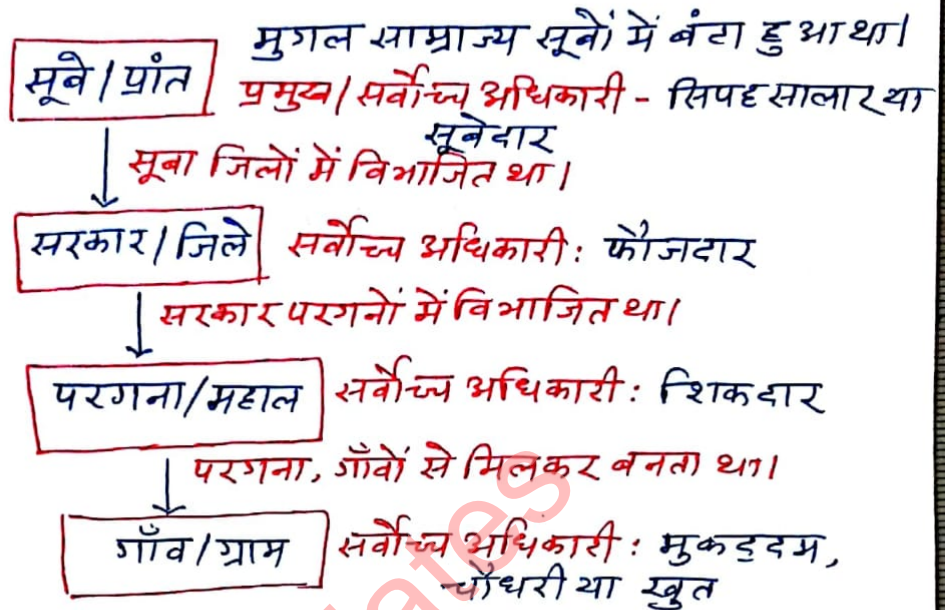 मुगल साम्राज्य सूबों में बंटा हुआ था।
सूबे/प्रांत
प्रमुख/सर्वोच्च अधिकारी - सिपहसालार या
सूबेदार
सूबा जिलों में विभाजित था।
सरकार/जिले सर्वोच्च अधिकारी: फौजदार
सरकार परगनों में विभाजित था।
परगना/महाल सर्वोच्च अधिकारी: शिकदार
परगना, गाँवों से मिलकर बनता था।
गाँव/ग्राम सर्वोच्च अधिकारी: मुकद्दम,
चौधरी या खुत